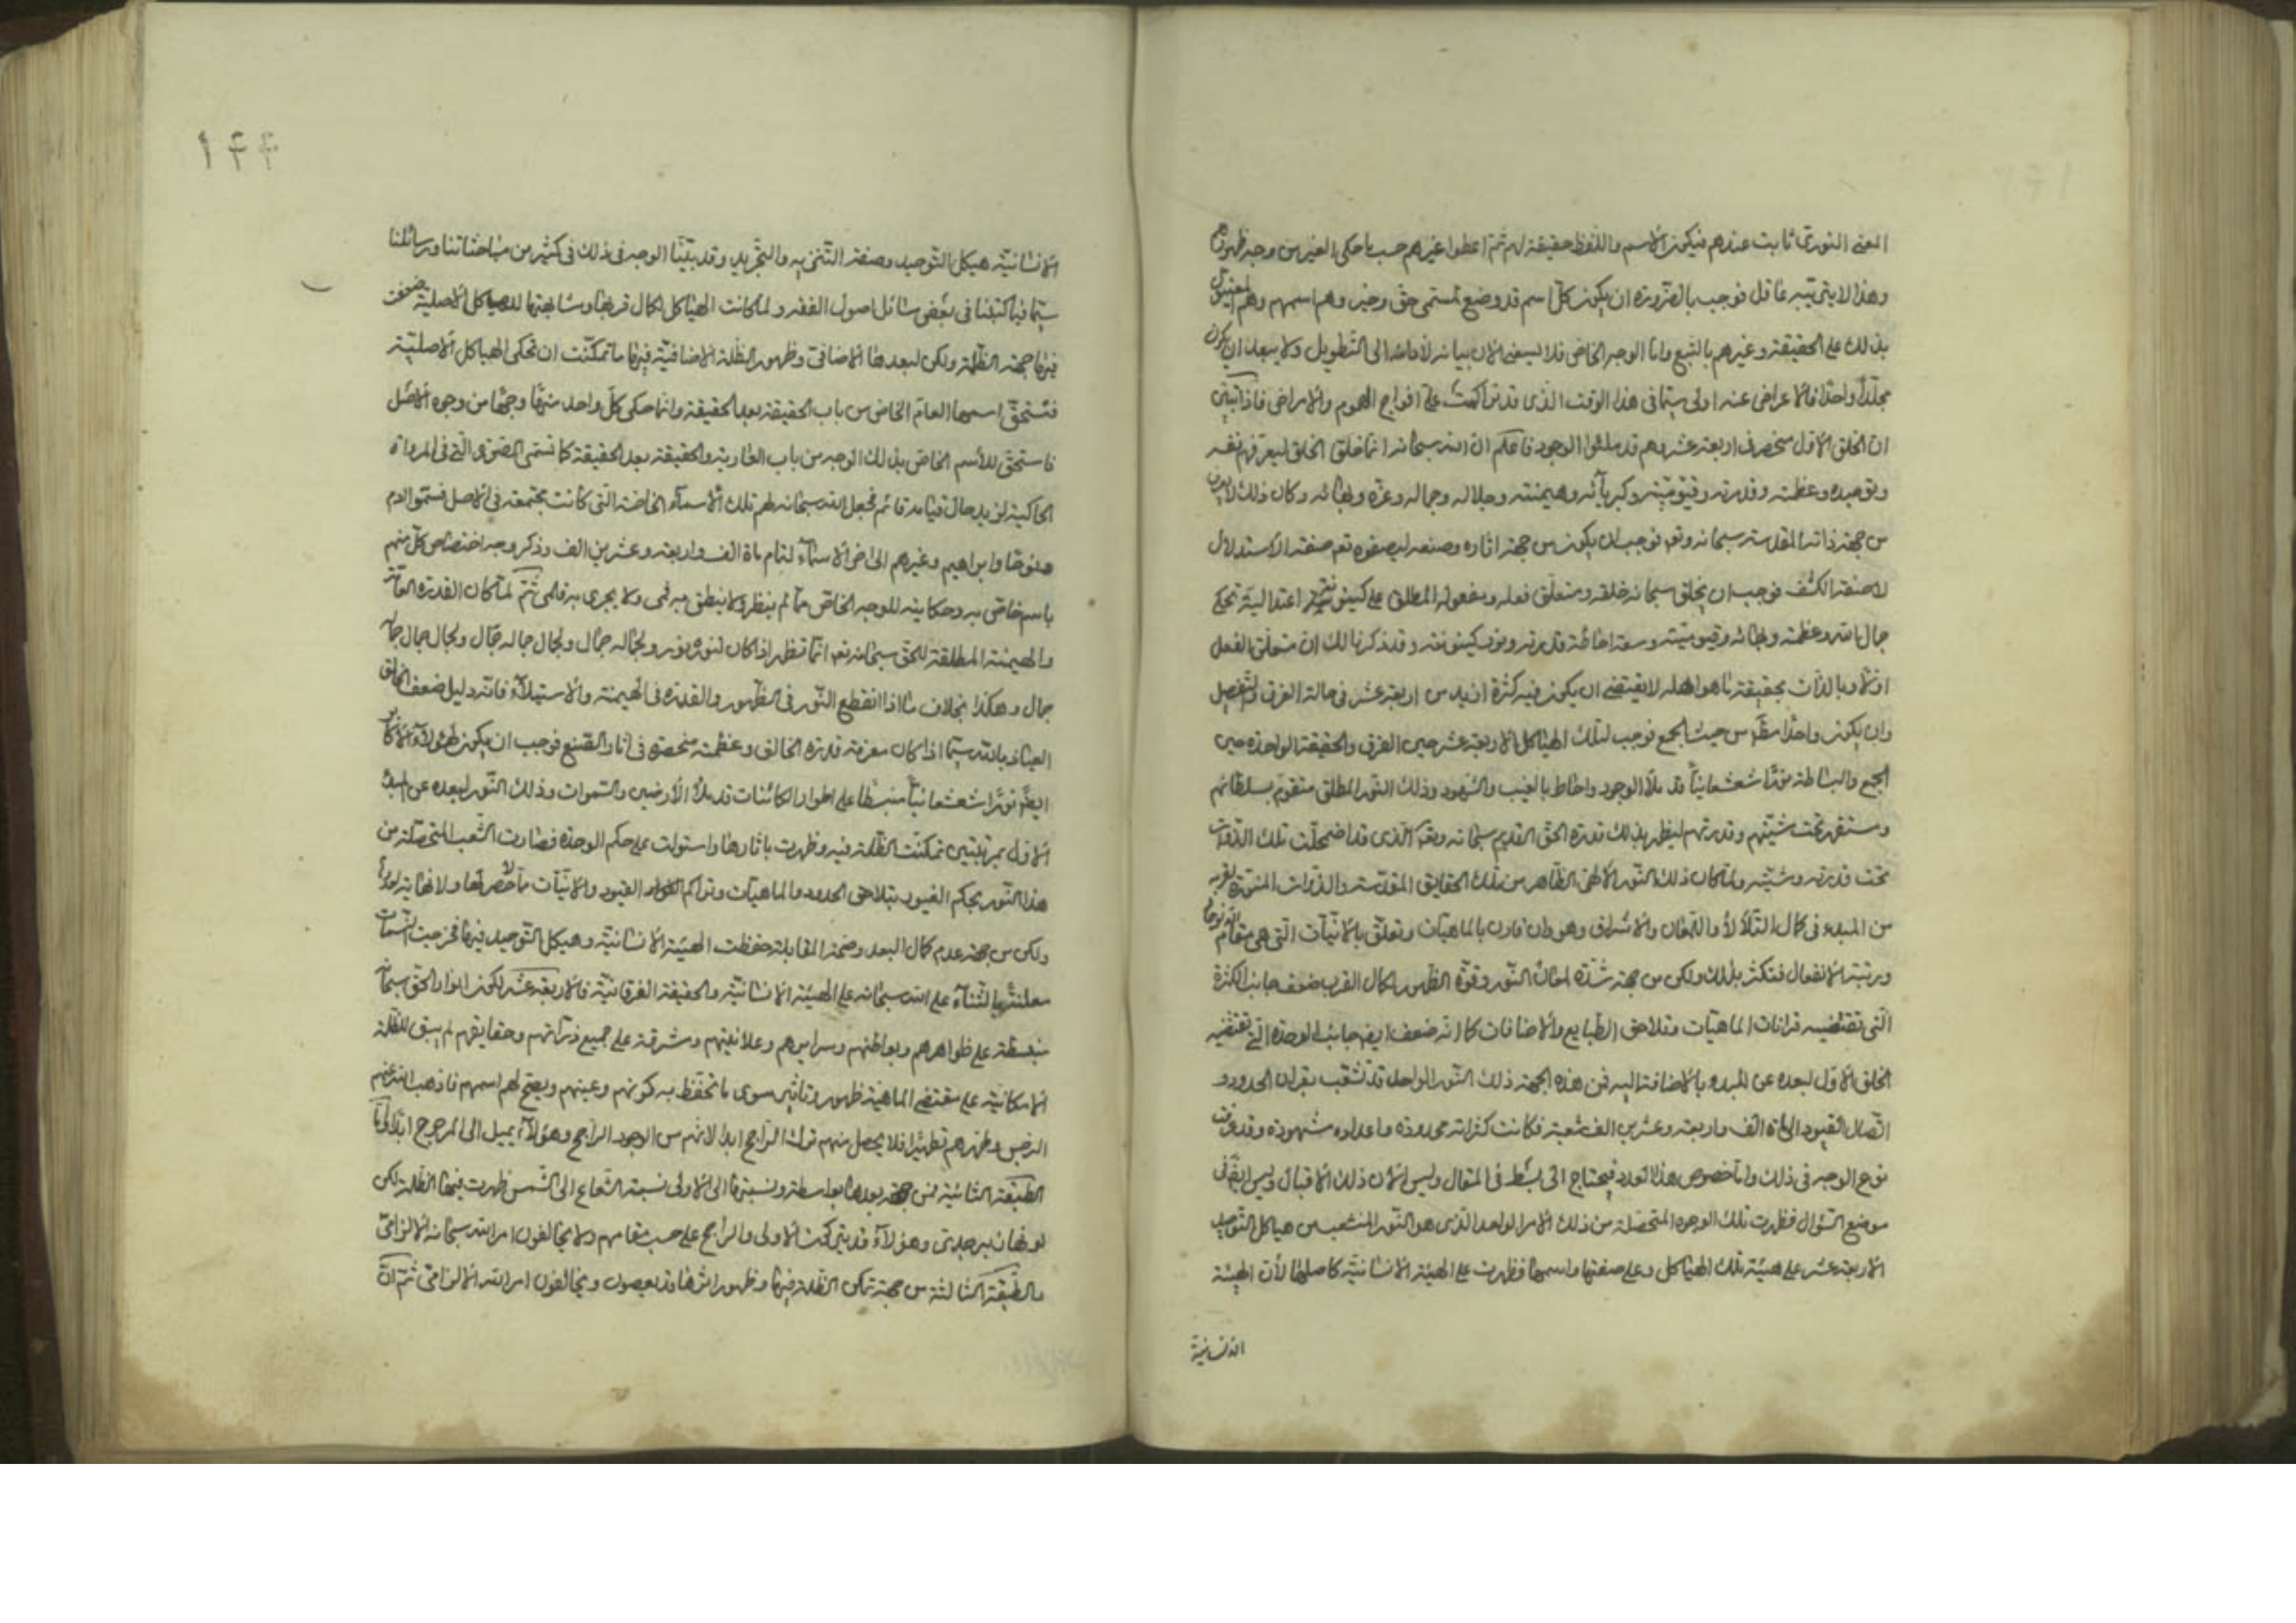 المعنى النورى ثابت عندهم فيكون الاسم واللفظ حقيقة لهم ثم اعطوا غيرهم حسب ما حكى الغير من وجه ظهورهم
وهذا لا يرتاب فيه عاقل فوجب بالضرورة ان يكون كل اسم قد وضع لمسمى حق وخير وهم اسمهم وهم المعنيون
بذلك على الحقيقة وغيرهم بالتبع واما الوجه الخاص فلا يسعنى الان بيانه لأدائه الى التطويل ولا يبعد ان يكون
مجلدا واحدا فالاعراض عنه اولى سيما فى هذا الوقت الذى قد تراكمت على افواج الهموم والامراض فاذا تبين
ان الخلق الاول منحصر فى اربعة عشر وهم قد ملئوا الوجود فاعلم ان الله سبحانه انما خلق الخلق ليعرفهم نفسه
وتوحيده وعظمته وقدرته وقيوميته وكبريآئه وهيمنته وجلاله وجماله وعزه وبهائه وكان ذلك لا يمكن
من جهة ذاته المقدسة سبحانه وتع فوجب ان يكون من جهة اثاره وصنعه ليصفوه تع صفة الاستدلال
لا صفة الكشف فوجب ان يخلق سبحانه خلقه ومتعلق فعله ومفعوله المطلق على كينونة اعتدالية تحكى
جمال الله وعظمته وبهائه وقيوميته وسعة احاطة قدرته ونور كينونته وقد ذكرنا لك ان متعلق الفعل
اولا وبالذات بحقيقة ما هو اهله لا يقتضى ان يكون فيه كثرة ازيد من اربعة عشر فى حالة الفرق والتفصيل
وان يكون واحدا من حيث الجمع فوجب لتلك الهياكل الاربعة عشر حين الفرق والحقيقة الواحدة حين
الجمع والبساطة نورا شعشعانيا قد ملأ الوجود واحاط بالغيب والشهود وذلك النور المطلق متقوم بسلطانهم
ومستقهر تحت مشيتهم وقدرتهم ليظهر بذلك قدرة الحق القديم سبحانه وتع الذى قد اضمحلت تلك الذوات
تحت قدرته ومشيته ولما كان ذلك النور الالهى الظاهر من تلك الحقايق المقدسة والذوات المنورة لقربه
من المبدء فى كمال التلألأ واللمعان والاشراق وهو وان قارن بالماهيات وتعلق بالانيات التى هى مقام
ورتبة الانفعال فتكثر بذلك ولكن من جهة شدة لمعان النور وقوة الظهور لكمال القرب ضعف جانب الكثرة
التى تقتضيه قرانات الماهيات وتلاحق الطبايع والاضافات كما انه ضعف ايض جانب الوحدة التى تقتضيه
الخلق الاول لبعده عن المبدء بالاضافة اليه فمن هذه الجهة ذلك النور الواحد قد تشعب بقران الحدود و
اتصال القيود الى مأة الف واربعة وعشرين الف شعبة فكانت كثراته محدودة واعداده مشهودة وقد عرفت
نوع الوجه فى ذلك واما خصوص هذا العدد فيحتاج الى بسط فى المقال وليس الان ذلك الاقبال وليس ايض
موضع السؤال فظهرت تلك الوجوه المتحصلة من ذلك الامر الواحد الذى هو النور المنشعب من هياكل التوحيد
الاربعة عشر على هيئة تلك الهياكل وعلى صفتها واسمها فظهرت على الهيئة الانسانية كاصلها لأن الهيئة
الانسانية
۱۴۴
الانسانية هيكل التوحيد وصفة التنزيه والتجريد وقد بينا الوجه فى ذلك فى كثير من مباحثاتنا ورسائلنا
سيما فيما كتبنا فى بعض مسائل اصول الفقه ولما كانت الهياكل لكمال قربها ومشابهتها للهياكل الاصلية ضعفت
فيها جهة الظلمة ولكن لبعدها الاضافى وظهور الظلمة الاضافية فيها ما تمكنت ان تحكى الهياكل الاصلية
فتستحق اسمها العام الخاص من باب الحقيقة بعد الحقيقة وانما حكى كل واحد منها وجها من وجوه الاصل
فاستحق للاسم الخاص بذلك الوجه من باب العارية والحقيقة بعد الحقيقة كما تسمى الصورة التى فى المرءاة
الحاكية لزيد حال قيامه قائم فجعل الله سبحانه لهم تلك الاسمآء الخاصة التى كانت مجتمعة فى الاصل فسموا ادم
ونوحا وابراهيم وغيرهم الى اخر الاسمآء لتمام مأة الف واربعة وعشرين الف وذكر وجه اختصاص كل منهم
باسم خاص به وحكايته للوجه الخاص مما لم ينظر ولا ينطق به فمى ولا يجرى به قلمى ثم لما كان القدرة التامة
والهيمنة المطلقة للحق سبحانه تع انما تظهر اذا كان لنوره نور ولجماله جمال ولجمال جماله جمال ولجمال جمال جماله
جمال وهكذا بخلاف ما اذا انقطع النور فى الظهور والقدرة فى الهيمنة والاستيلآء فانه دليل ضعف الخالق
العياذ بالله سيما اذا كان معرفة قدرة الخالق وعظمته منحصرة فى اثار الصنع فوجب ان يكون لهؤلآء الاكابر
ايض نورا شعشعانيا منبسطا على اطوار الكائنات قد ملأ الارضين والسموات وذلك النور لبعده عن المبدء
الاول بمرتبتين تمكنت الظلمة فيه وظهرت باثارها واستولت على حكم الوحدة فصارت الشعب المتحصلة من
هذا النور بحكم الغيوب بتلاحق الحدود والماهيات وتراكم القيود والانيات مما لا حصر لها ولا نهاية لعددها
ولكن من جهة عدم كمال البعد وصحة المقابلة حفظت الهيئة الانسانية وهيكل التوحيد فيها فخرجت النسمات
معلنة بالثنآء على الله سبحانه على الهيئة الانسانية والحقيقة الفرقانية فالاربعة عشر لكون انوار الحق سبحانه
منبسطة على ظواهرهم وبواطنهم وسرايرهم وعلانيتهم ومشرقة على جميع ذراتهم وحقايقهم لم يبق للظلمة
الامكانية على مقتضى الماهية ظهور وتاثير سوى ما تحفظ به كونهم وعينهم ويصح لهم اسمهم فاذهب الله عنهم
الرجس وطهرهم تطهيرا فلا يحصل منهم ترك الراجح ابدا لانهم من الوجود الراجح وهؤلآء يميل الى المرجوح ابدا واما
الطبقة الثانية فمن جهة بعدها بواسطة ونسبتها الى الاولى نسبة الشعاع الى الشمس ظهرت فيها الظلمة لكن
وهؤلآء قد يتركون الاولى والراجح على حسب مقامهم ولا يخالفون امر الله سبحانه الالزامى
والطبقة الثالثة من جهة تمكن الظلمة فيها وظهور اثرها قد يعصون ويخالفون امر الله الالزامى ثم ان